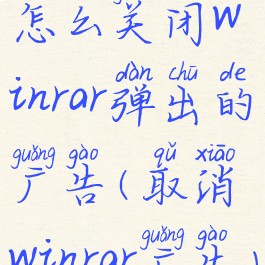 怎么关闭w
dàn chū de
inrar弹出的
guǎng gào qǔ xiāo
广告(取消
guǎng gào
winrar广告)